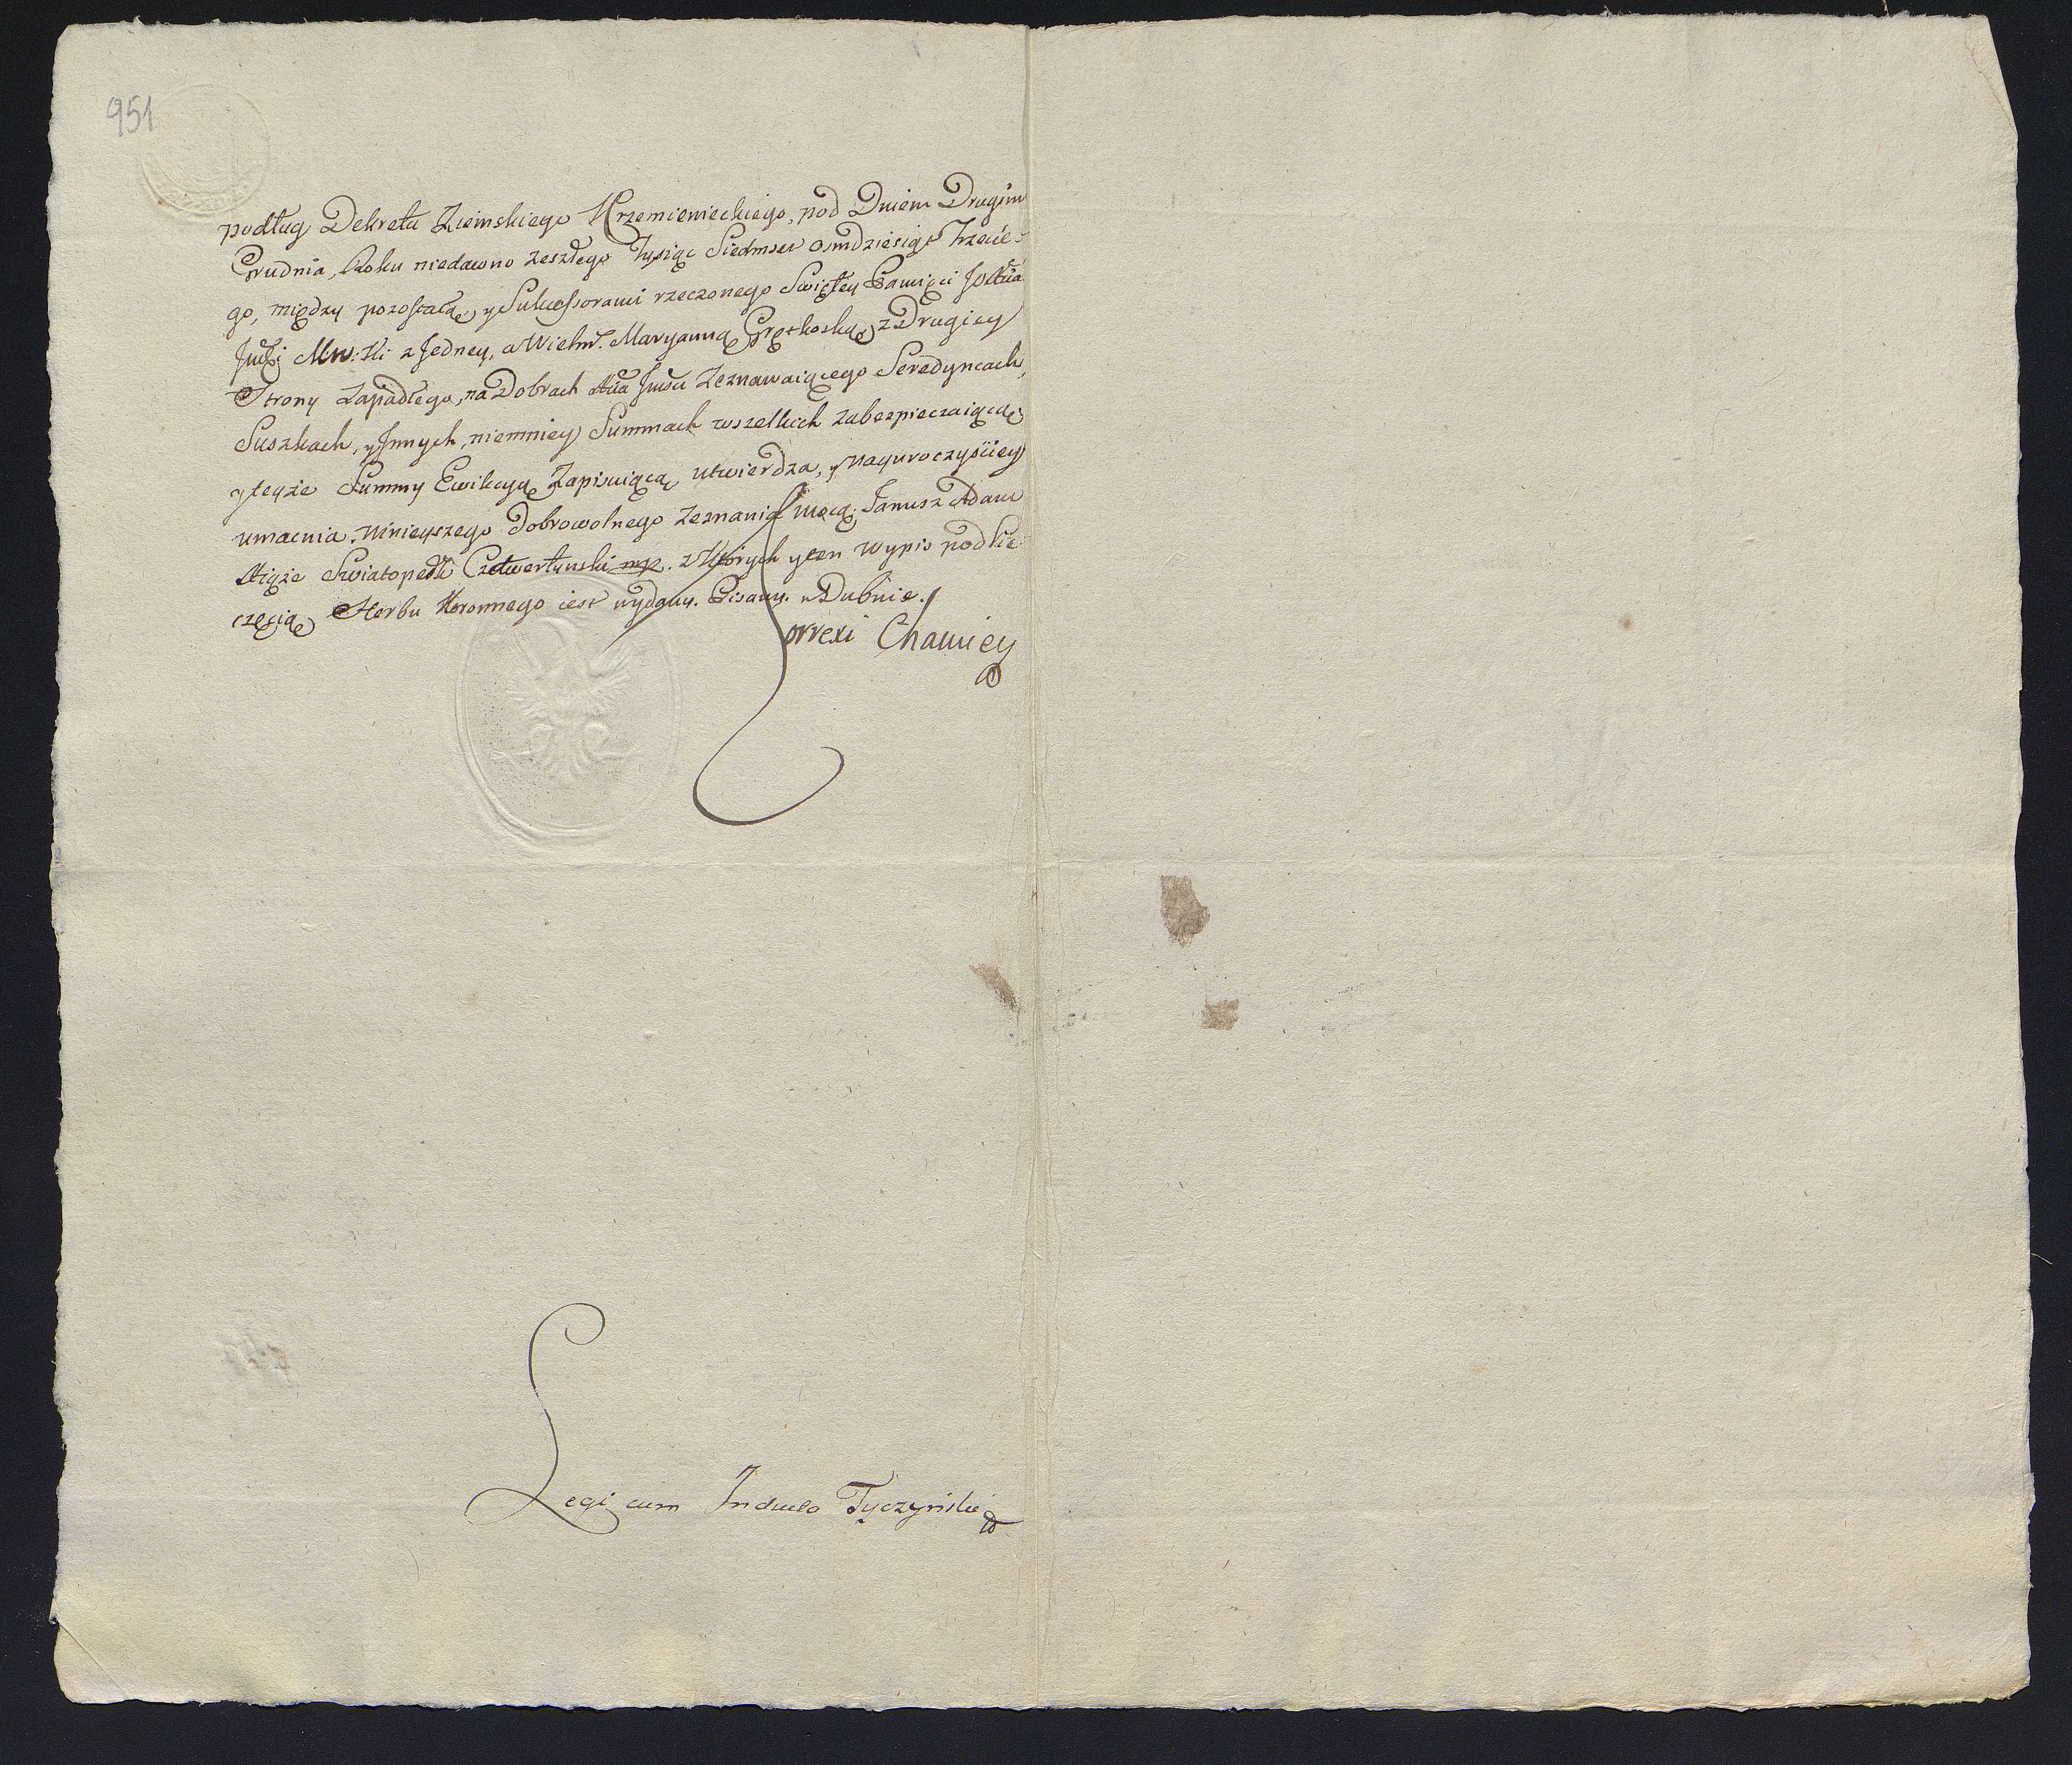 951
podług Dekretu Ziemskiego Krzemienieckiego, pod Dniem Drugim
Grudnia, Roku niedawno zeszłego Tysiąc Siedmset osmdziesiąt Trzecie-
go, między pozostałą, y Sukcessorami rzeczonego Swiętey Pamięci
z Jedney, a Wielm. Maryanną Grętkoską, z Drugiey
Strony zapadłego, na Dobrach Zeznawaiącego Seredyncach,
Suszkach, y Innych, niemniey Summach wszelkich zabezpieczaiącą,
y teyże Summy Ewikcyą Zapisuiącą, utwierdza, y nayuroczyściey
umacnia, ninieyszego Dobrowolnego Zeznania mocą; Janusz Adam
Xiąże Swiatopełk Czetwertynski mp. z których y ten Wypis pod Pie-
częcią, Herbu Koronnego iest wydany. Pisany. w Dubnie.
Correxi Chamiey
Legi cum Inducto Tyczyński